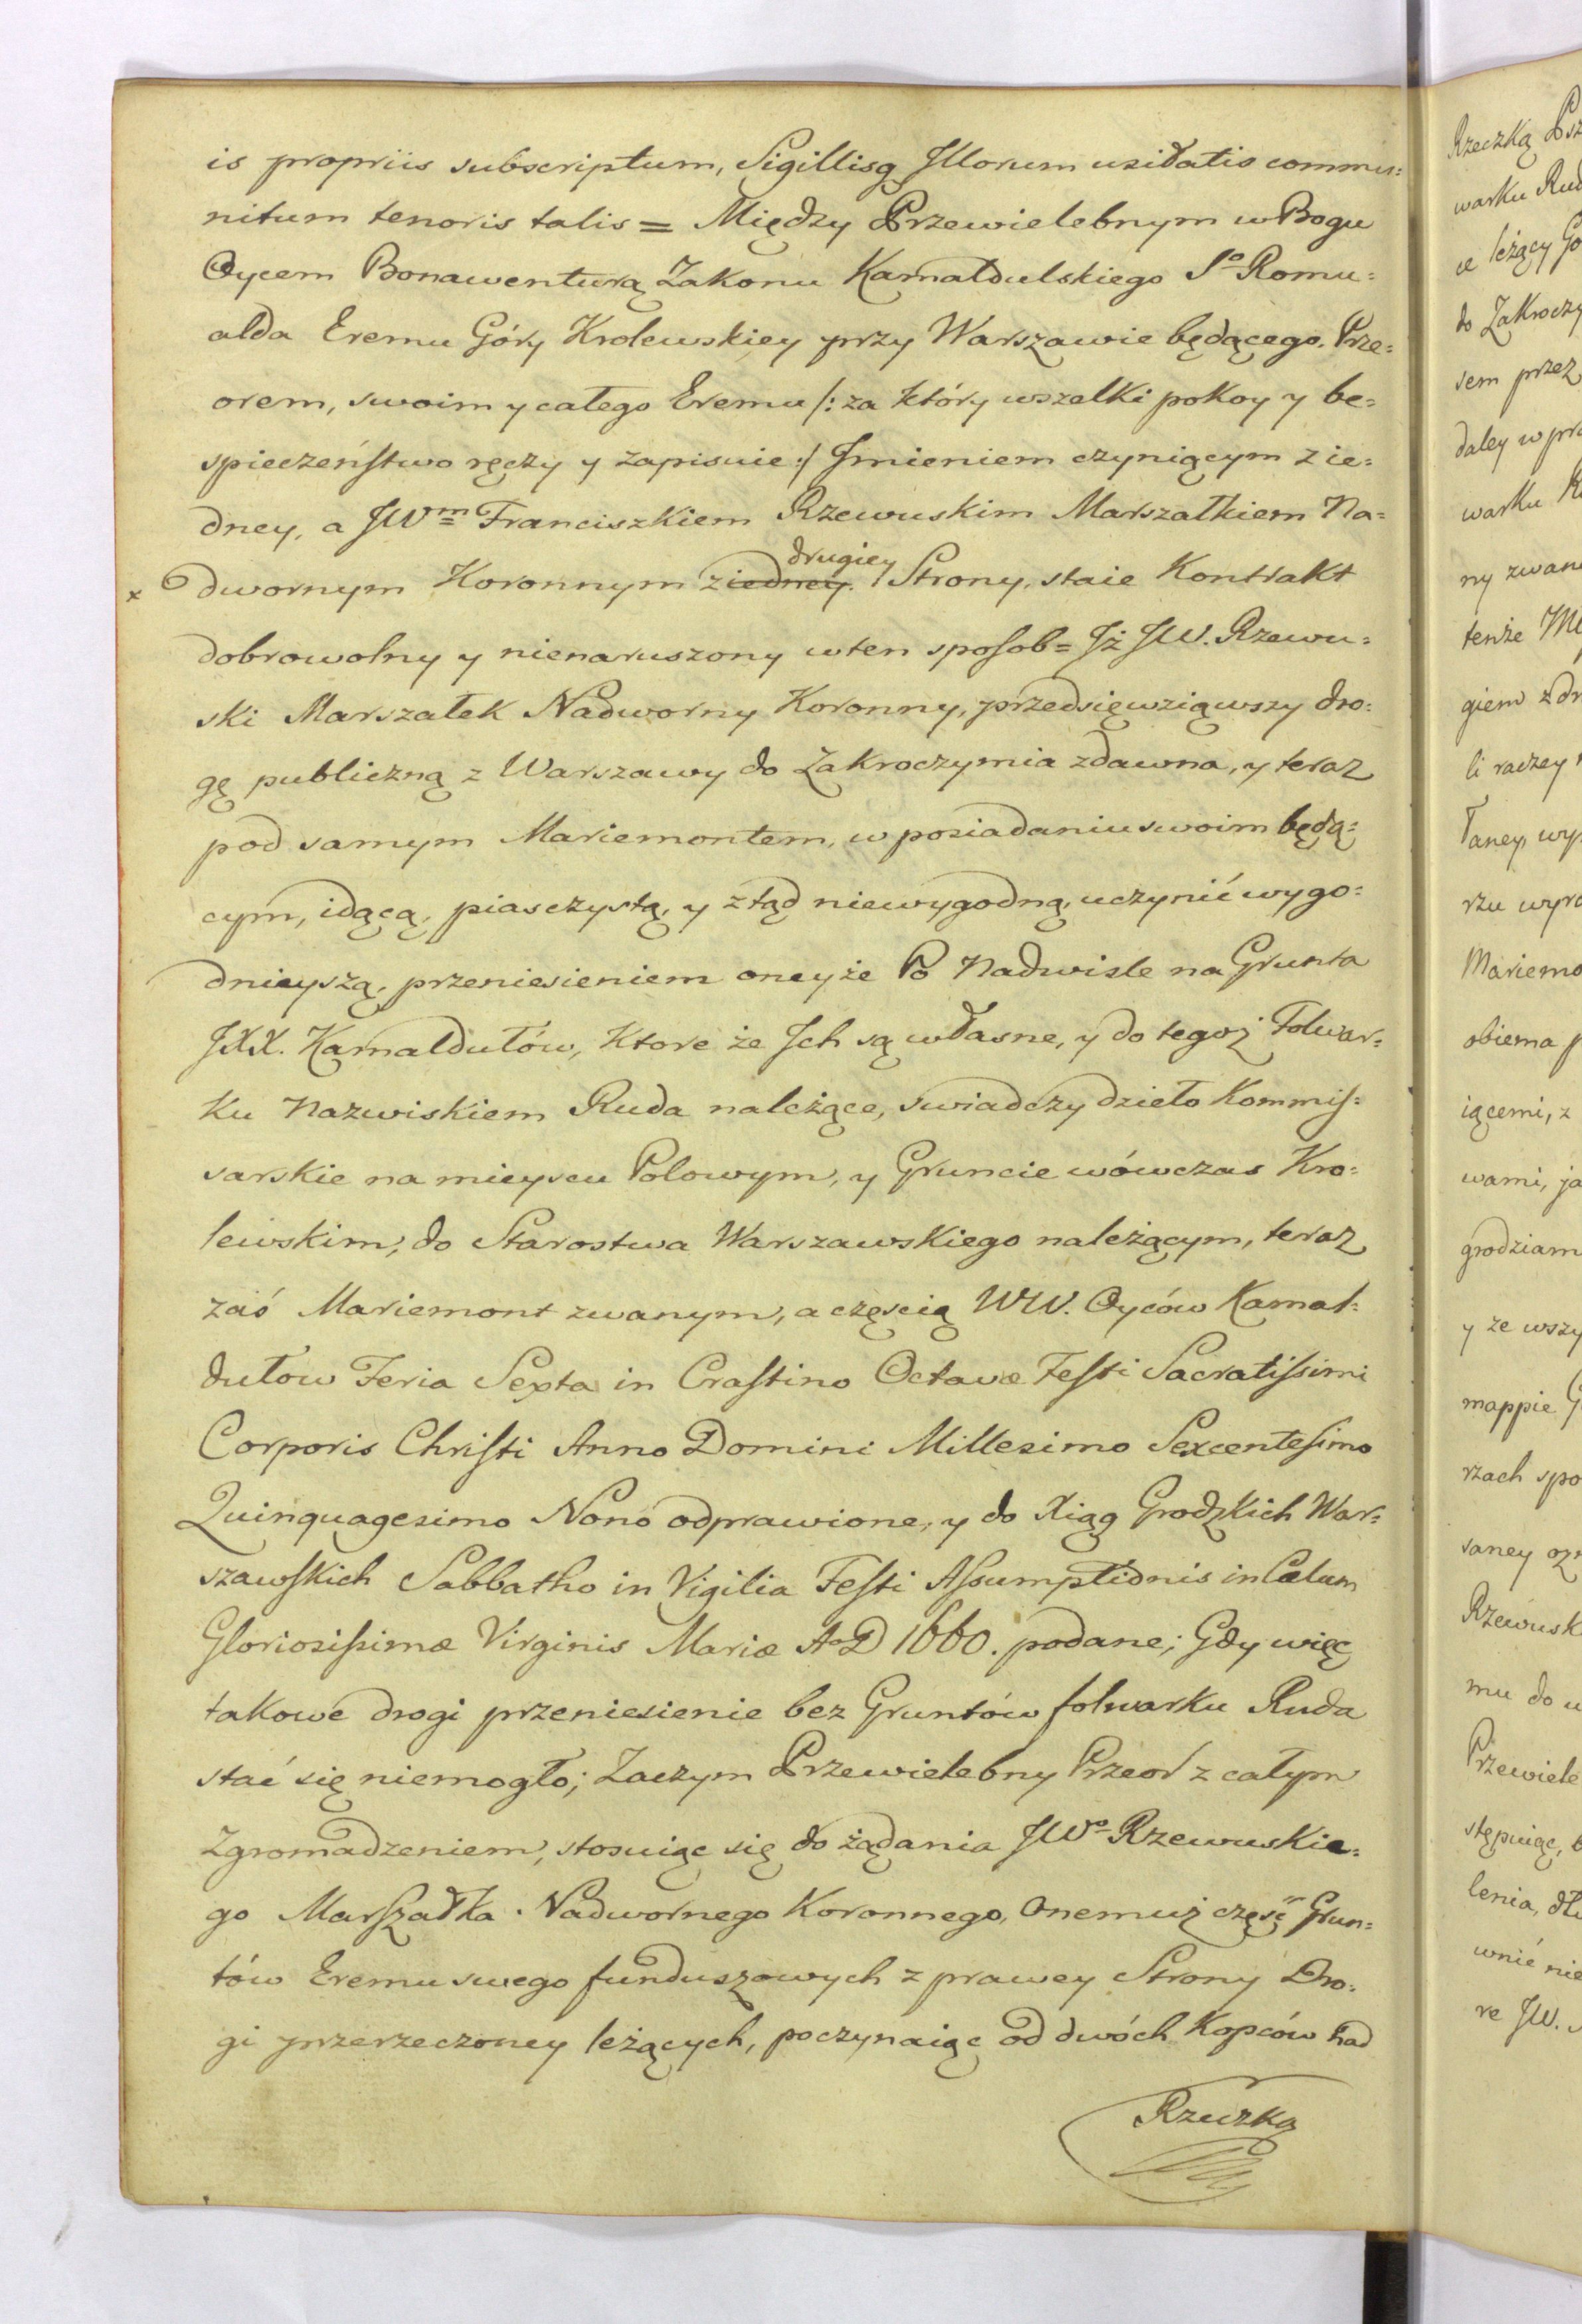 is propriis subscriptum, Sigillisq Illorum usitatis commu=
nitum tenoris talis = Między Przewielebnym w Bogu
Oycem Bonawenturą Zakonu Kamaldulskiego S° Romu=
alda Eremu Góry Krolewskiey przy Warszawie będącego. Prze=
orem, swoim y całego Eremu /: za który wszelki pokoy y be=
spieczeństwo ręczy y zapisuie :/ Imieniem czyniącym z ie=
dney, a JWm Franciszkiem Rzewuskim Marszałkiem Na=
drugiey
x dwornym Koronnym z iedney. / Strony, staie Kontrakt
dobrowolny y nienaruszony w ten sposob = Iż JW. Rzewu=
ski Marszałek Nadworny Koronny, przedsięwziąwszy dro=
gę publiczną z Warszawy do Zakroczymia zdawna, y teraz
pod samym Mariemontem, w posiadaniu swoim będą=
cym, idącą, piasczystą, y ztąd niewygodną, uczynić wygo=
dnieyszą, przeniesieniem oneyże Po Nadwisle na Grunta
JXX. Kamaldułów, Ktore że Ich są własne, y do tegoż Folwar=
ku Nazwiskiem Ruda należące, swiadczy dzieło Kommis=
sarskie na mieyscu Polowym, y Gruncie wówczas Kro=
lewskim, do Starostwa Warszawskiego należącym, teraz
zaś Mariemont zwanym, a częscią WW. Oyców Kamal=
dułow Feria Sexta in Crastino Octavæ Festi Sacratissimi
Corporis Christi Anno Domini Millesimo Sexcentesimo
Quinquagesimo Nono odprawione, y do Xiąg Grodzkich War=
szawskich Sabbatho in Vigilia Festi Assumptionis in Cælum
Gloriosissimæ Virginis Mariæ A°D 1660. podane; Gdy więc
takowe drogi przeniesienie bez Gruntów folwarku Ruda
stać się niemogło; Zaczym Przewielebny Przeor z całym
Zgromadzeniem, stosuiąc się do żądania JW° Rzewuskie=
go Marszałka Nadwornego Koronnego, Onemuż częsć Grun=
tów Eremu swego funduszowych z prawey Strony Dro=
gi przerzeczoney leżących, poczynaiąc od dwóch Kopców nad
Rzeczką
Rzeczką
warku
leżący
do Zakroczy
sem przez
daley w
warku
ny zwan
tenże
giem
li raczey
taney, wy
rzu
Mariemo
obiema p
iącemi, z
wami, ja
grodziam
y ze wszy
mappie
rzach spo
saney
Rzewusk
mu do
Przewiele
stępuiąc,
lenia,
wnić nie
re JW.